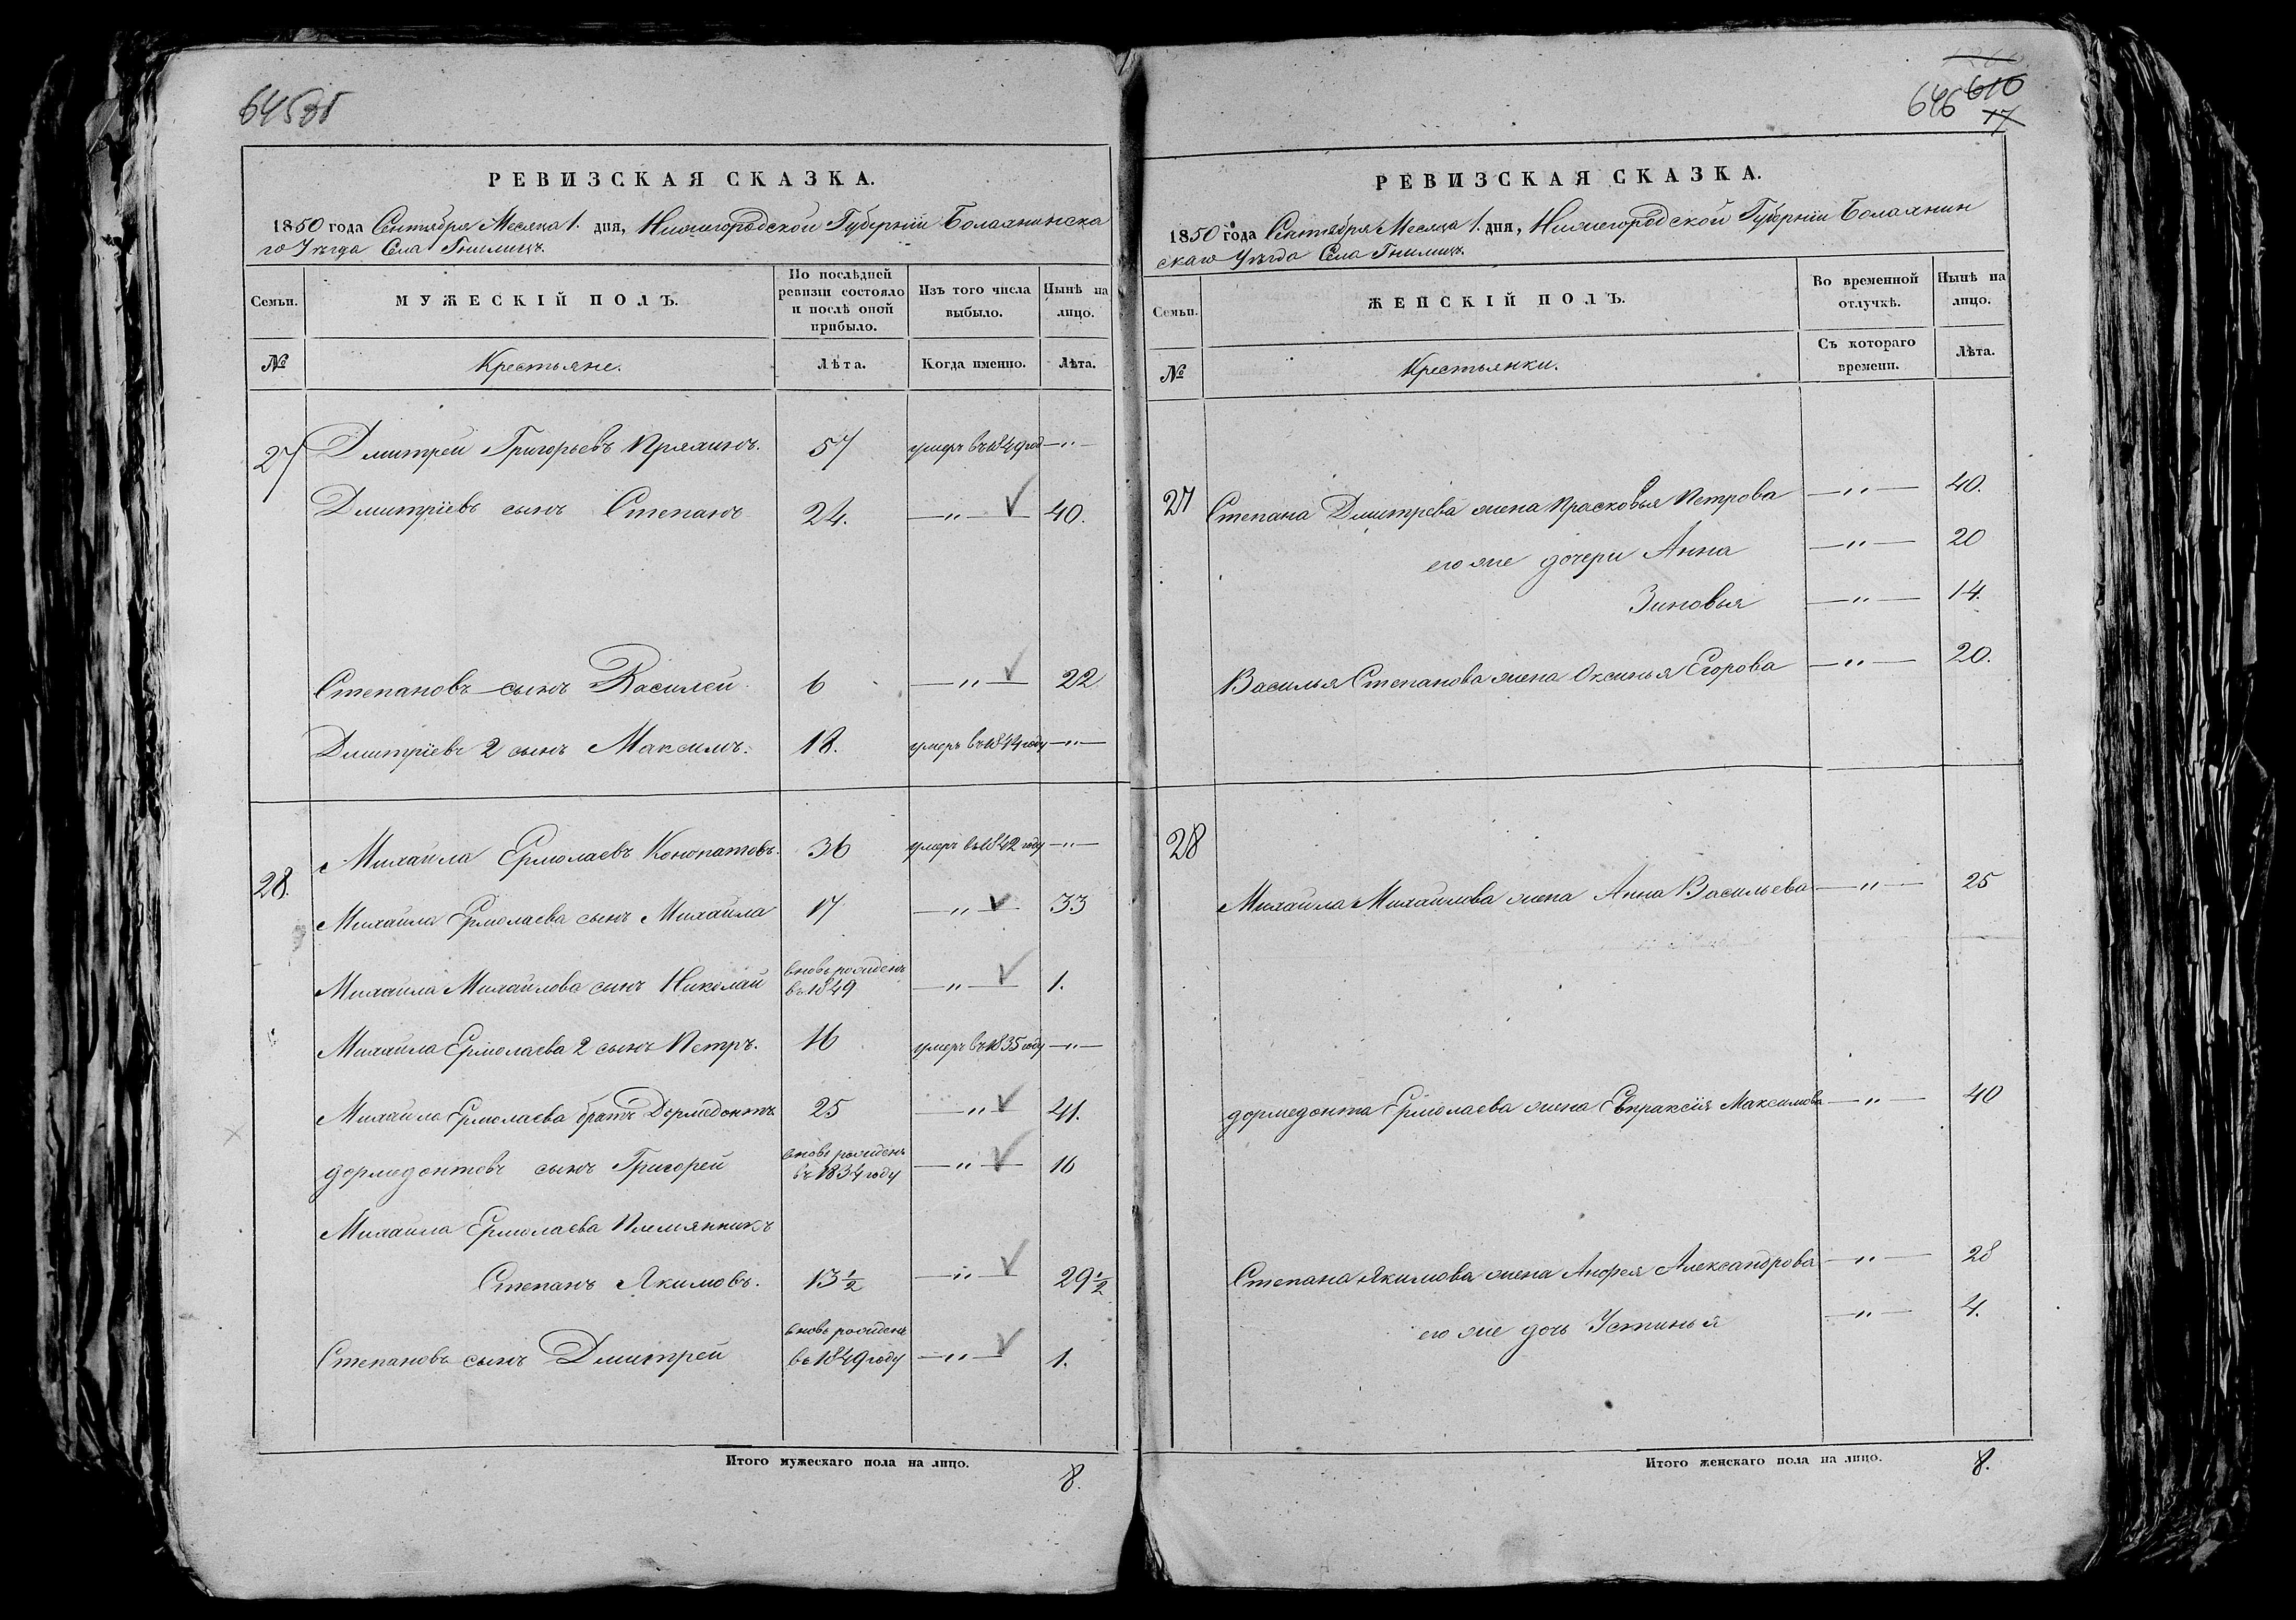 645
646 616
17
РЕВИЗСКАЯ СКАЗКА.
1850 года Сентября Месяца 1. дня, Нижегородской Губерніи Балахнинска
го Уѣзда Села Гнилицъ.
Семьи.
МУЖЕСКІЙ ПОЛЪ.
По послѣдней ревизіи состояло и послѣ оной прибыло.
Изъ того числа выбыло.
Нынѣ на лицо.
№
Крестьяне.
Лѣта.
Когда именно.
Лѣта.
27 Дмитрей Григорьевъ Пряхинъ. 57 умеръ въ 1849 год —"—
Дмитріевъ сынъ Степанъ 24. —"— 40.
Степановъ сынъ Василей 6 —"— 22
Дмитріевъ 2 сынъ Максимъ. 18. умеръ въ 1844 году —"—
28. Михайла Ермолаевъ Конопатовъ. 36 умеръ въ 1842 году —"—
Михайла Ермолаева сынъ Михайла 17 —"— 33
Михайла Михайлова сынъ Николай вновь рожденъ въ 1849 —"— 1.
Михайла Ермолаева 2 сынъ Петръ. 16 умеръ въ 1835 году —"—
Михайла Ермолаева братъ Дормедонтъ 25 —"— 41.
дормедонтовъ сынъ Григорей вновь рожденъ въ 1834 году —"— 16
Михайла Ермолаева Племянникъ
Степанъ Якимовъ. 13 1/2 —"— 29 1/2
Степановъ сынъ Дмитрей вновь рожденъ въ 1849 году —"— 1.
Итого мужескаго пола на лицо. 8.
РЕВИЗСКАЯ СКАЗКА.
1850 года Сентября Месяца 1. дня, Нижегородской Губерніи Балахнин
скаго Уѣзда Села Гнилицъ.
Семьи.
ЖЕНСКІЙ ПОЛЪ.
Во временной отлучкѣ.
Нынѣ на лицо.
№
Крестьянки.
Съ котораго времени.
Лѣта.
27 Степана Дмитрева жена Прасковья Петрова —"— 40.
его же дочери Анна —"— 20
Зиновья —"— 14.
Василья Степанова жена Оксинья Егорова —"— 20.
28
Михайла Михайлова жена Анна Васильева —"— 25
дормедонта Ермолаева жена Евпраксія Максимова —"— 40
Степана Якимова жена Анфея Александрова —"— 28
его же дочь Устинья —"— 4.
Итого женскаго пола на лицо. 8.